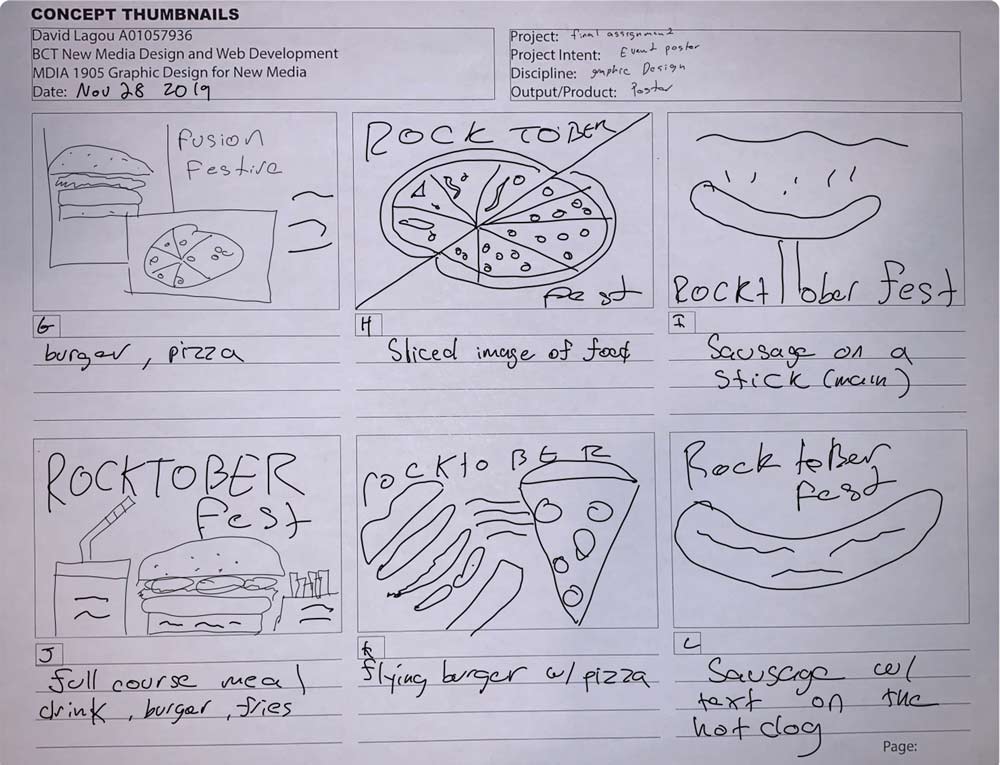 CONCEPT THUMBNAILS
David Lagou A01057936
BCT New Media Design and Web Development
MDIA 1905 Graphic Design for New Media
Date: Nov 28 2019
Project: final assignment
Project Intent: Event poster
Discipline: graphic Design
Output/Product: Poster
Fusion
Festive
G
burger, pizza
ROCK TOBER
fest
H
Sliced image of food
Rockt ober fest
I
Sausage on a
Stick (main)
ROCKTOBER
fest
J
full course meal
drink, burger, fries
rockto BER
K
flying burger w/ pizza
Rock toBer
fest
L
Sausage w/
text on the
hot dog
Page: